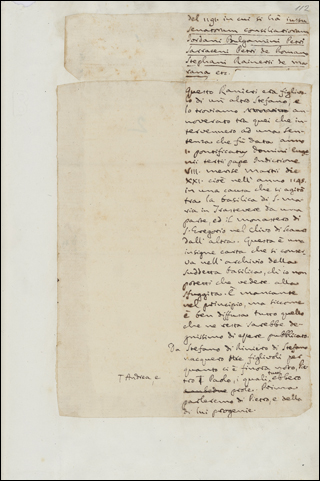 112
del 1191 in cui si hà iussu
Senatorum consiliariorum
Jordani Bulgamini Petri
Sarraceni Petri de Roman
Stephani Rainerii de
etc.
Questo Ranieri era figliuo-
lo di un altro Stefano, e
lo troviamo
noverato tra quei che in-
tervennero ad una Sen-
tenza che fù data anno
pontificatus Domini Euge-
nii tertii pape Indictione
VIII. mense Martii die
XXI. cioè nell'anno
in una causa che si agitò
trà la Basilica di S. Ma-
ria in Trastevere da una
parte, ed il monastero di
S. Gregorio nel clivo di Scauro
dall'altra. Questa è una
insigne carta che si conser-
va nell'archivio della
suddetta Basilica, ch'io non
potetti che vedere alla
sfuggita. È mancante
nel principio, ma siccome
è ben diffusa tutto quello
che ne resta sarebbe de-
gnissimo di essere pubblicato.
Da Stefano di Riniero di Stefano
nacquero tre figliuoli per
quanto ci è finora noto, Pie-
tro T Paolo, i quali tutti ebbero
T Andrea e
prole. Prima
parleremo di Pietro, e della
di lui progenie.